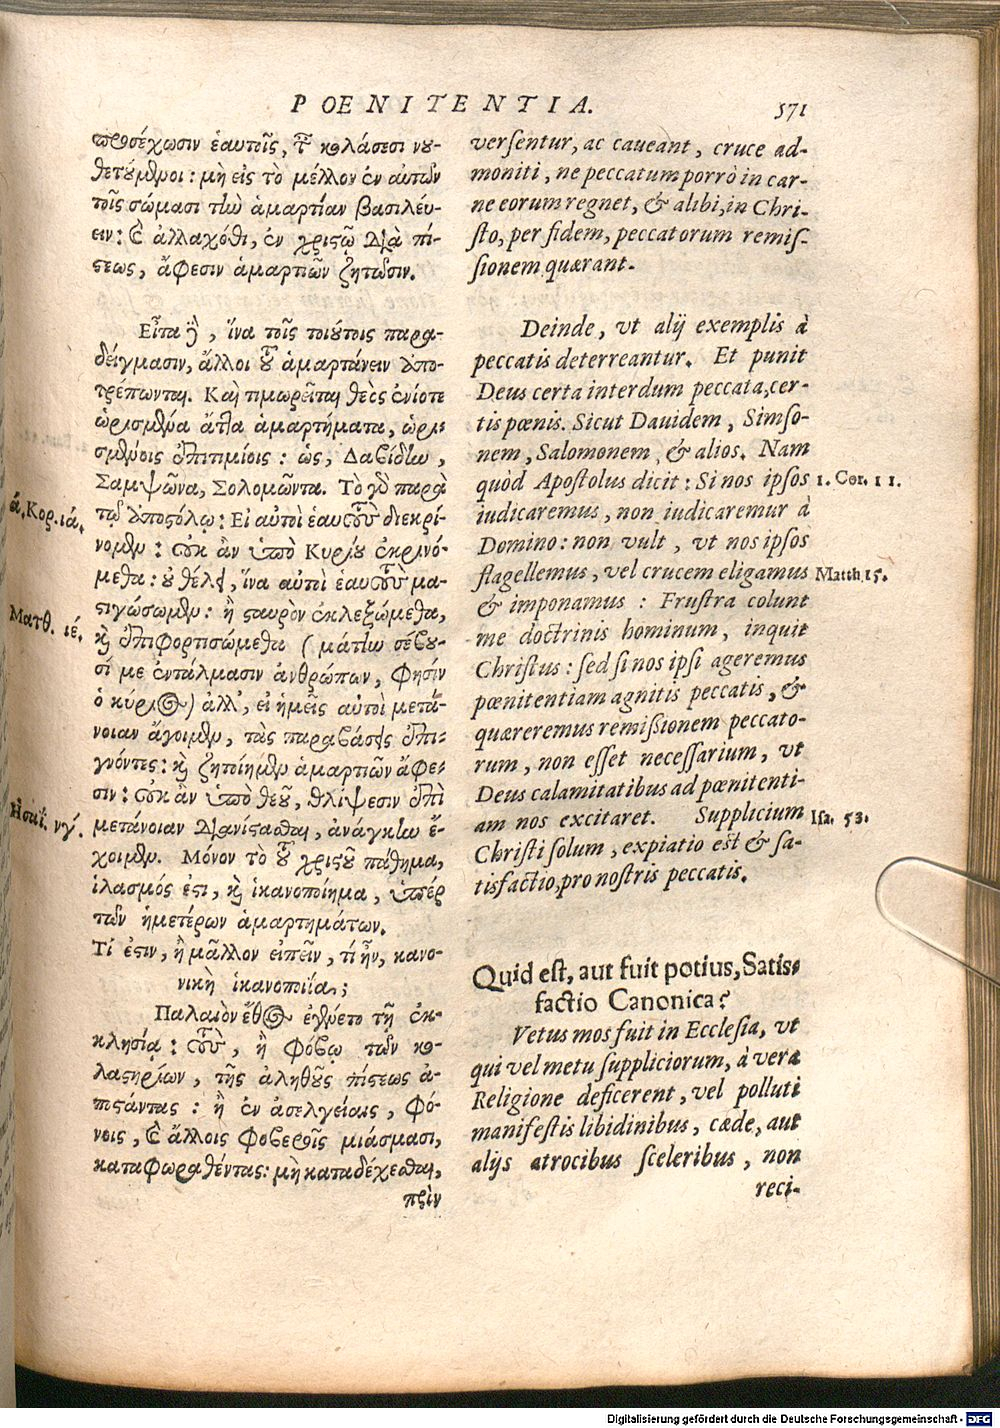 POENITENTIA.
571
προσέχωσιν ἑαυτοῖς, τῇ κολάσει νου-
θετούμενοι: μὴ εἰς τὸ μέλλον ἐν αὐτῶν
τοῖς σώμασι τὴν ἁμαρτίαν βασιλεύ-
ειν: καὶ ἀλλαχόθι, ἐν χριστῷ διὰ πί-
στεως, ἄφεσιν ἁμαρτιῶν ζητῶσιν.
Εἶτα δὲ, ἵνα τοῖς τοιούτοις παρα-
δείγμασιν, ἄλλοι τοῦ ἁμαρτάνειν ἀπο-
τρέπωνται. Καὶ τιμωρεῖται θεὸς ἐνίοτε
ὡρισμένα ἄττα ἁμαρτήματα, ὡρι-
σμένοις ἐπιτιμίοις: ὡς, Δαβίδην,
Σαμψῶνα, Σολομῶντα. Τὸ γὰρ παρὰ
τῷ ἀποστόλῳ: Εἰ αὐτοὶ ἑαυτοὺς διεκρί-
νομεν: οὐκ ἂν ὑπὸ Κυρίου ἐκρινό-
μεθα: οὐ θέλει, ἵνα αὐτοὶ ἑαυτοὺς μα-
στιγώσωμεν: ἢ σταυρὸν ἐκλεξώμεθα,
καὶ ἐπιφορτισώμεθα (μάτην σέβου-
σί με ἐντάλμασιν ἀνθρώπων, Φησίν
ὁ κύριος) ἀλλ', εἰ ἡμεῖς αὐτοὶ μετά-
νοιαν ἄγοιμεν, τὰς παραβάσεις ἐπι-
γνόντες: καὶ ζητοίημεν ἁμαρτιῶν ἄφε-
σιν: οὐκ ἂν ὑπὸ θεοῦ, θλίψεσιν ἐπὶ
μετάνοιαν διανίστασθαι, ἀνάγκην ἔ-
χοιμεν. Μόνον τὸ τοῦ χριστοῦ πάθημα,
ἱλασμός ἐστι, καὶ ἱκανοποίημα, ὑπὲρ
τῶν ἡμετέρων ἁμαρτημάτων.
Τί ἐστιν, ἢ μᾶλλον εἰπεῖν, τί ἦν, κανο-
νικὴ ἱκανοποιΐα;
Παλαιὸν ἔθος ἐγένετο τῇ ἐκ-
κλησίᾳ: τοὺς, ἢ φόβῳ τῶν κο-
λαστηρίων, τῆς ἀληθοῦς πίστεως ἀ-
ποστάντας: ἢ ἐν ἀσελγείαις, φό-
νοις, καὶ ἄλλοις φοβεροῖς μιάσμασι,
καταφωραθέντας: μὴ καταδέχεσθαι,
πρὶν
ά. Κορ. ιά.
Ματθ. ιέ.
Ησαΐ. νγ́.
versentur, ac caueant, cruce ad-
moniti, ne peccatum porrò in car-
ne eorum regnet, & alibi, in Chri-
sto, per fidem, peccatorum remis-
sionem quærant.
Deinde, vt alij exemplis à
peccatis deterreantur. Et punit
Deus certa interdum peccata, cer-
tis pœnis. Sicut Dauidem, Simso-
nem, Salomonem, & alios. Nam
quòd Apostolus dicit: Si nos ipsos
iudicaremus, non iudicaremur à
Domino: non vult, vt nos ipsos
flagellemus, vel crucem eligamus
& imponamus: Frustra colunt
me doctrinis hominum, inquit
Christus: sed si nos ipsi ageremus
pœnitentiam agnitis peccatis, &
quæreremus remissionem peccato-
rum, non esset necessarium, vt
Deus calamitatibus ad pœnitenti-
am nos excitaret. Supplicium
Christi solum, expiatio est & sa-
tisfactio, pro nostris peccatis.
Quid est, aut fuit potius, Satis-
factio Canonica?
Vetus mos fuit in Ecclesia, vt
qui vel metu suppliciorum, à vera
Religione deficerent, vel polluti
manifestis libidinibus, cæde, aut
alijs atrocibus sceleribus, non
reci-
1. Cor. 11.
Matth 15.
Isa. 53.
Digitalisierung gefördert durch die Deutsche Forschungsgemeinschaft - DFG